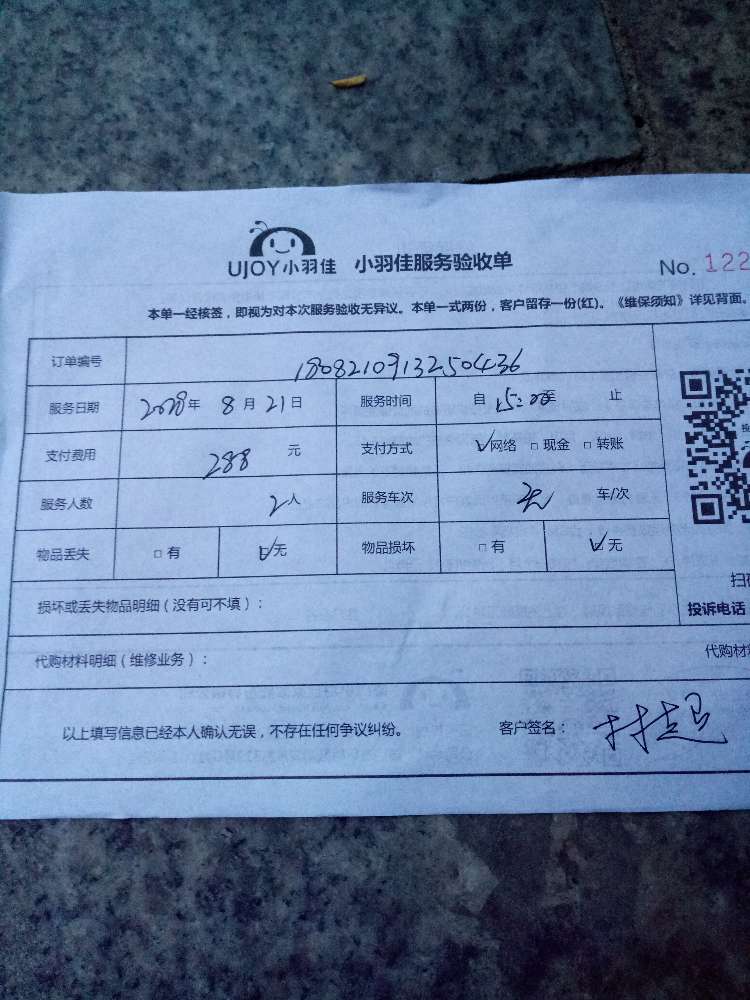 UJOY小羽佳 小羽佳服务验收单
No. 122
本单一经核签，即视为对本次服务验收无异议。本单一式两份，客户留存一份(红)。《维保须知》详见背面。
订单编号 18082109132504436
服务日期 2018年 8月21日 服务时间 自 15:00至 止
支付费用 288 元 支付方式 ☑网络 □现金 □转账
服务人数 2人 服务车次 无 车/次
物品丢失 □有 ☑无 物品损坏 □有 ☑无
损坏或丢失物品明细（没有可不填）：
投诉电话
代购材料明细（维修业务）：
以上填写信息已经本人确认无误，不存在任何争议纠纷。 客户签名：